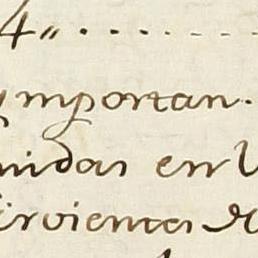 4,,
ymportan.
nidas en V
irvientes de